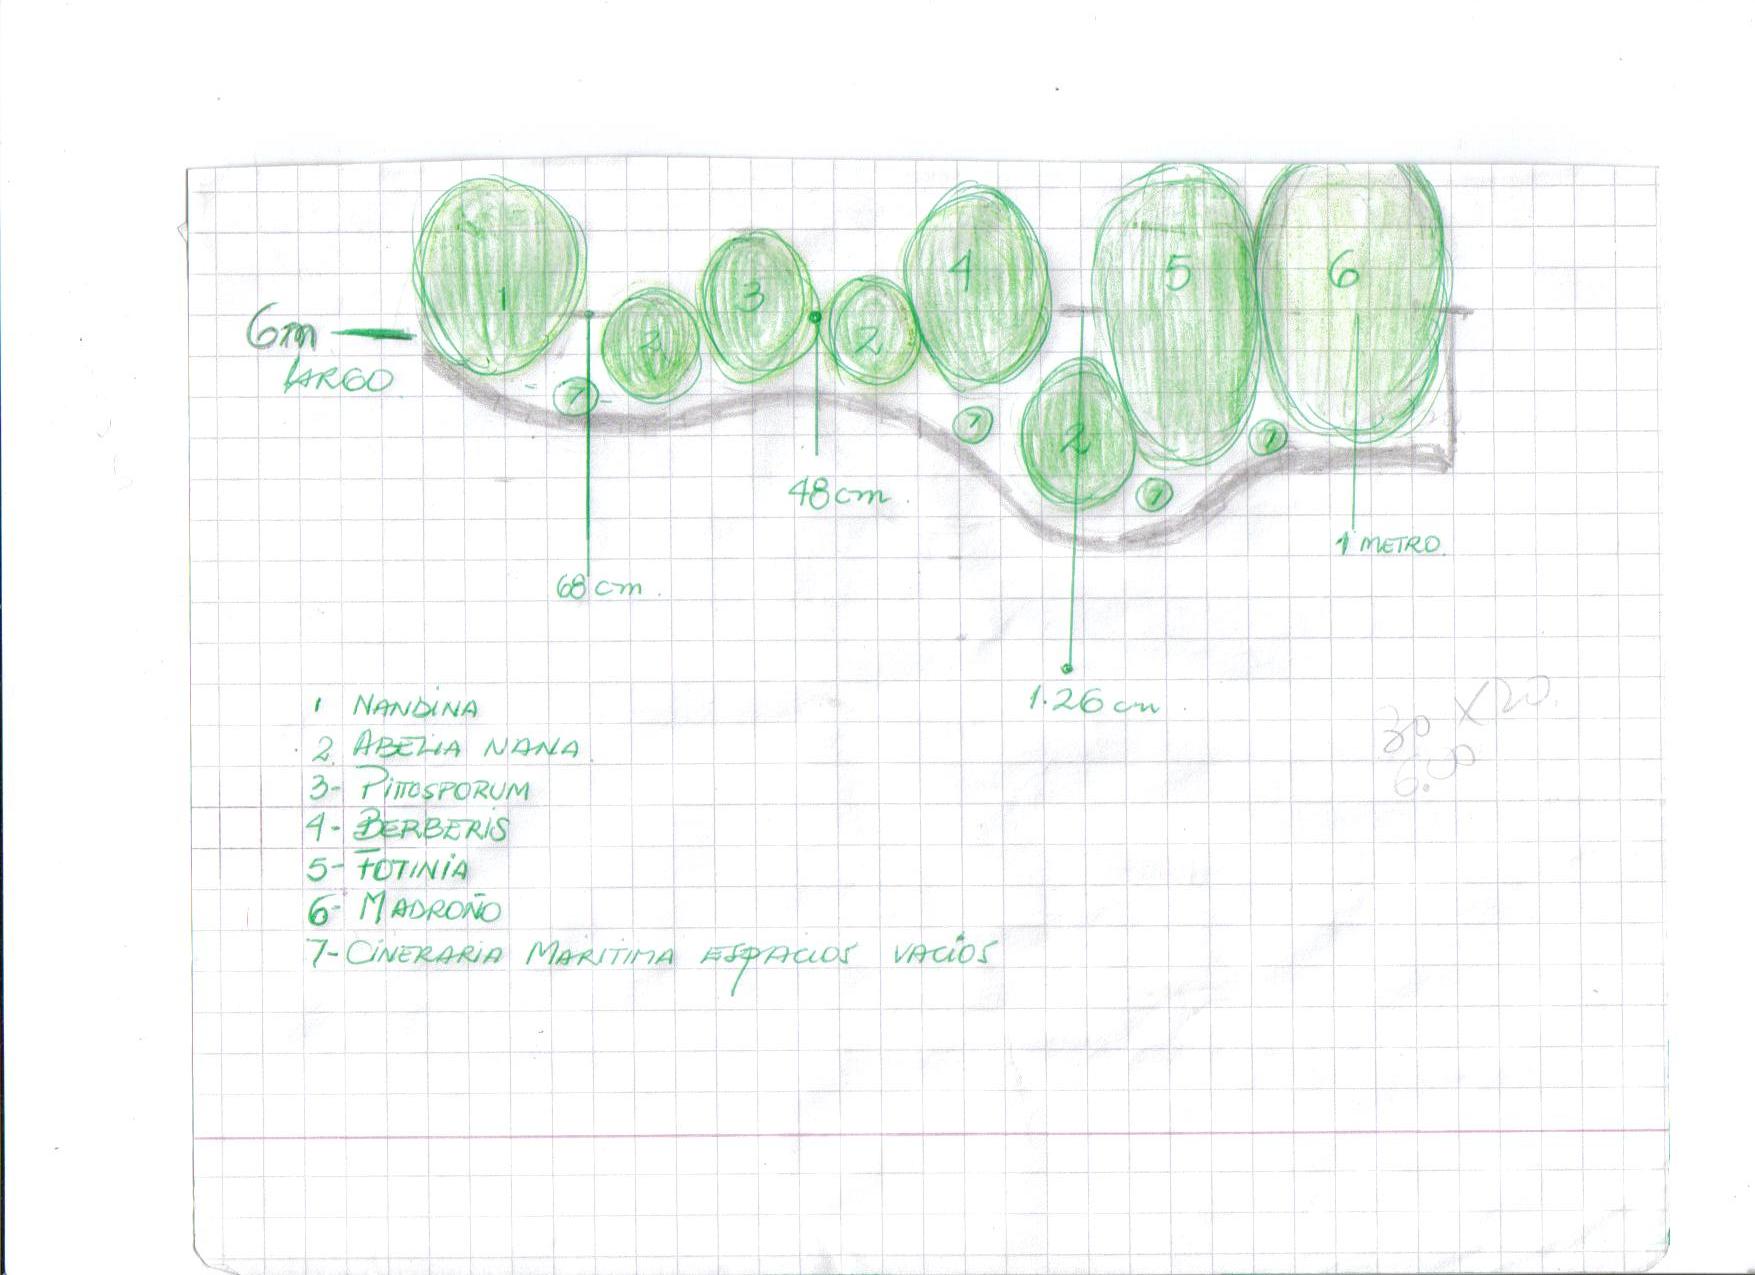 1
2
3
2
4
5
6
6m
LARGO
7
7
2
7
7
48 cm.
1 METRO.
68 cm.
1.26 cm.
1 NANDINA
2. ABELIA NANA.
3- PITTOSPORUM
4- BERBERIS
5- FOTINIA
6- MADROÑO
7- CINERARIA MARITIMA ESPACIOS VACIOS
30 X 20.
6.00